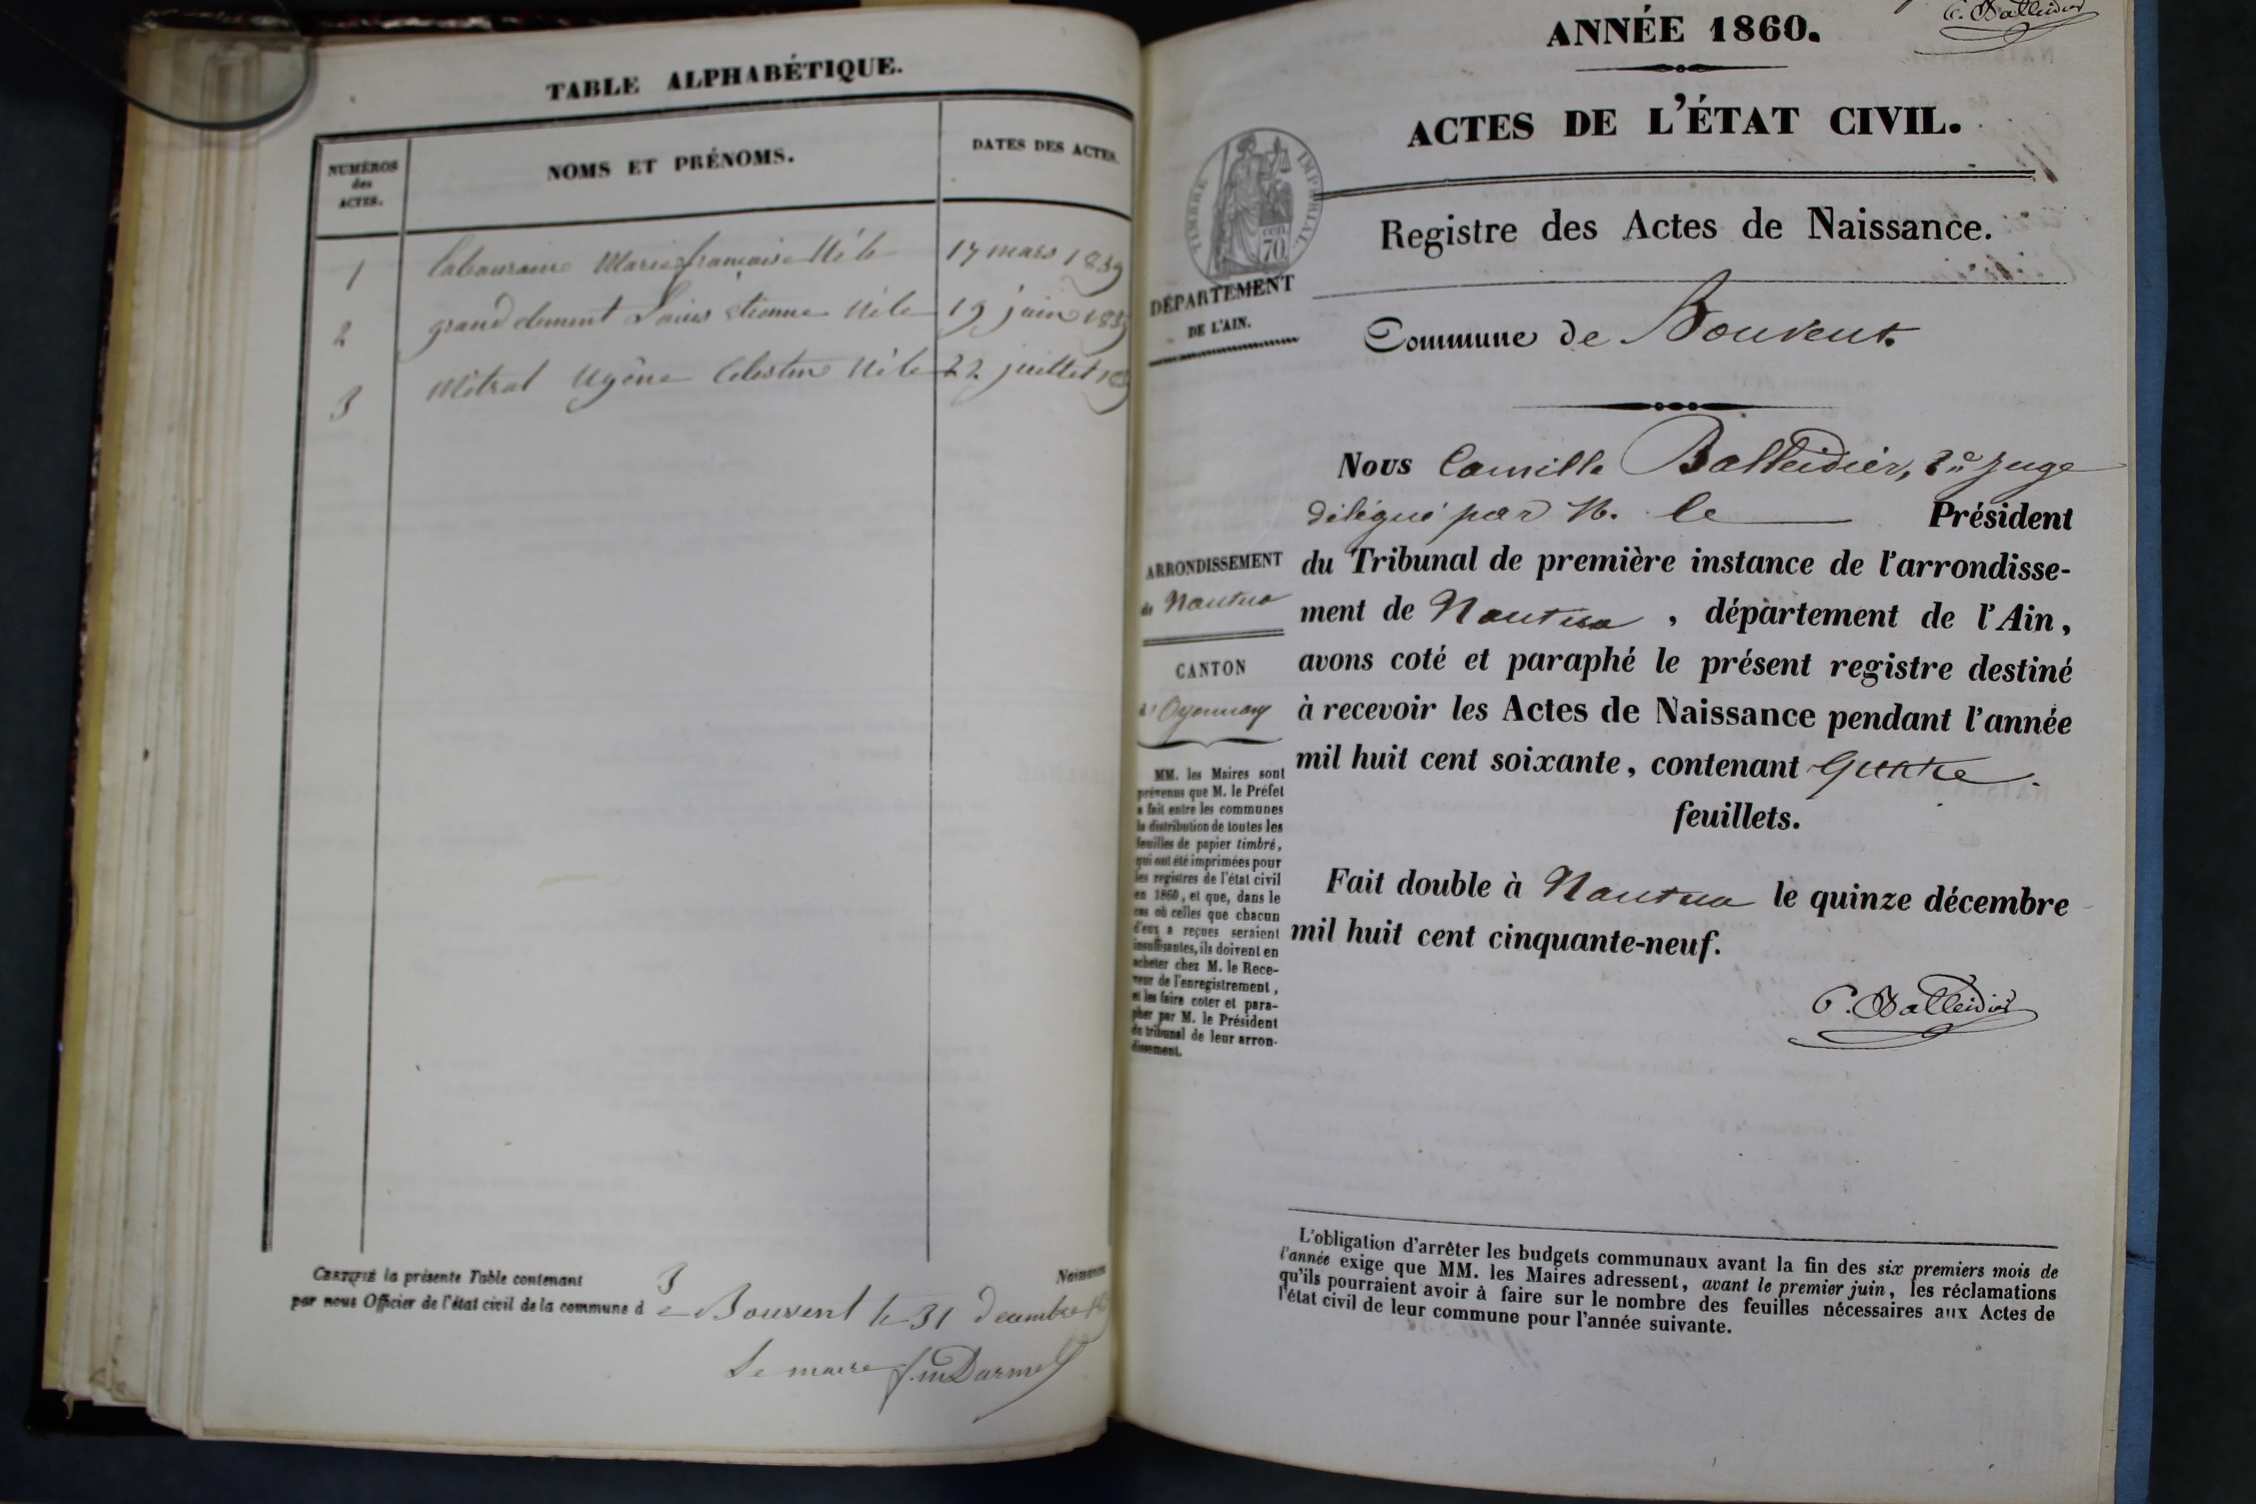 TABLE ALPHABÉTIQUE.
NUMÉROS
des
ACTES.
NOMS ET PRÉNOMS.
DATES DES ACTES.
1 Labouraine Marie françoise Né le 17 mars 1859
2 grand clement Louis etienne Né le 19 juin 1859
3 Mitral Ugène Celestin Né le 22 juillet
CERTIFIÉ la présente Table contenant 3 Naissances
par nous Officier de l'état civil de la commune d e Bouvent le 31 decembre
Le maire
ANNÉE 1860.
C. Balleidier
ACTES DE L'ÉTAT CIVIL.
TIMBRE IMPÉRIAL.
CENT.
70
Registre des Actes de Naissance.
DÉPARTEMENT
DE L'AIN.
Commune de Bouvent.
Nous Camille Balleidier, Juge
délégué par M. le Président
du Tribunal de première instance de l'arrondisse-
ment de Nantua, département de l'Ain,
avons coté et paraphé le présent registre destiné
à recevoir les Actes de Naissance pendant l'année
mil huit cent soixante, contenant Quatre
feuillets.
Fait double à Nantua le quinze décembre
mil huit cent cinquante-neuf.
C. Balleidier
ARRONDISSEMENT
de Nantua
CANTON
d' Oyonnax
MM. les Maires sont
prévenus que M. le Préfet
a fait entre les communes
la distribution de toutes les
feuilles de papier timbré,
qui ont été imprimées pour
les registres de l'état civil
en 1860, et que, dans le
cas où celles que chacun
d'eux a reçues seraient
insuffisantes, ils doivent en
acheter chez M. le Rece-
veur de l'enregistrement,
et les faire coter et para-
pher par M. le Président
du tribunal de leur arron-
dissement.
L'obligation d'arrêter les budgets communaux avant la fin des six premiers mois de
l'année exige que MM. les Maires adressent, avant le premier juin, les réclamations
qu'ils pourraient avoir à faire sur le nombre des feuilles nécessaires aux Actes de
l'état civil de leur commune pour l'année suivante.